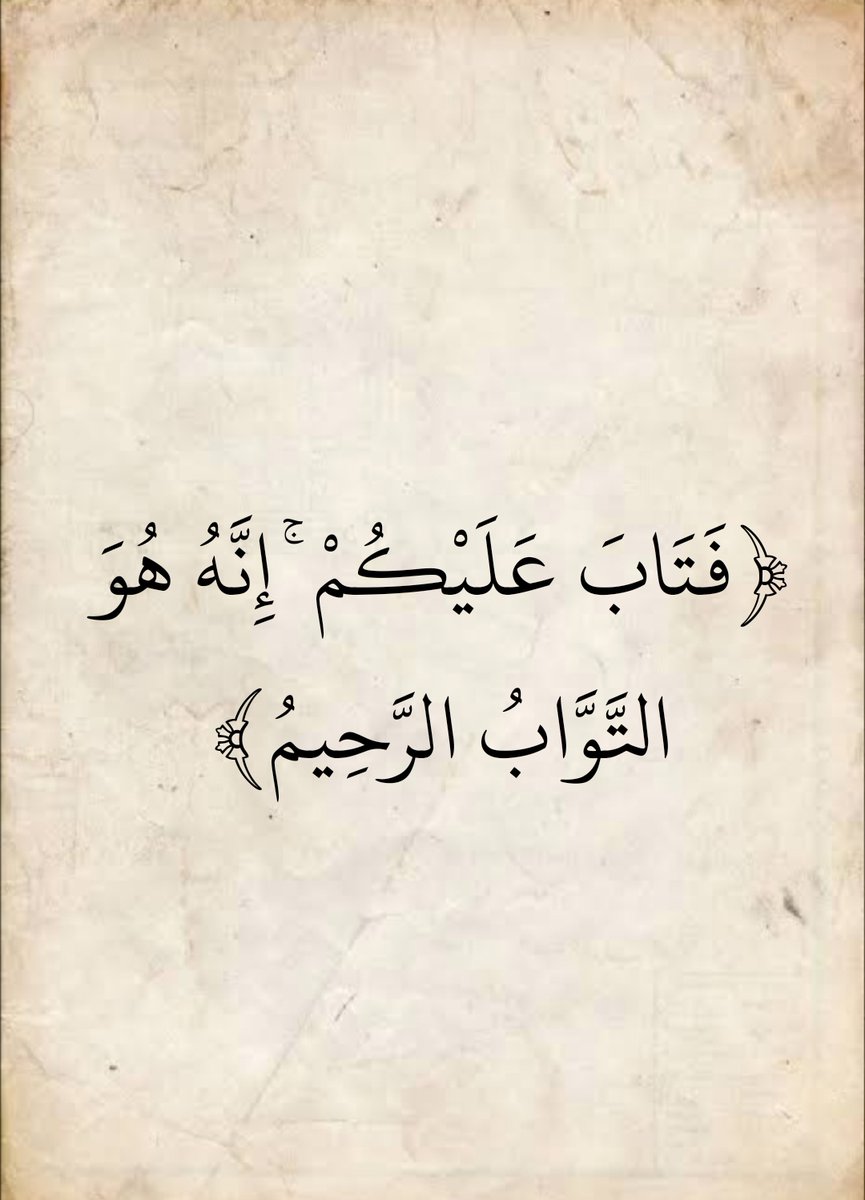 ﴿فَتَابَ عَلَيْكُمْ ۚ إِنَّهُ هُوَ
التَّوَّابُ الرَّحِيمُ﴾